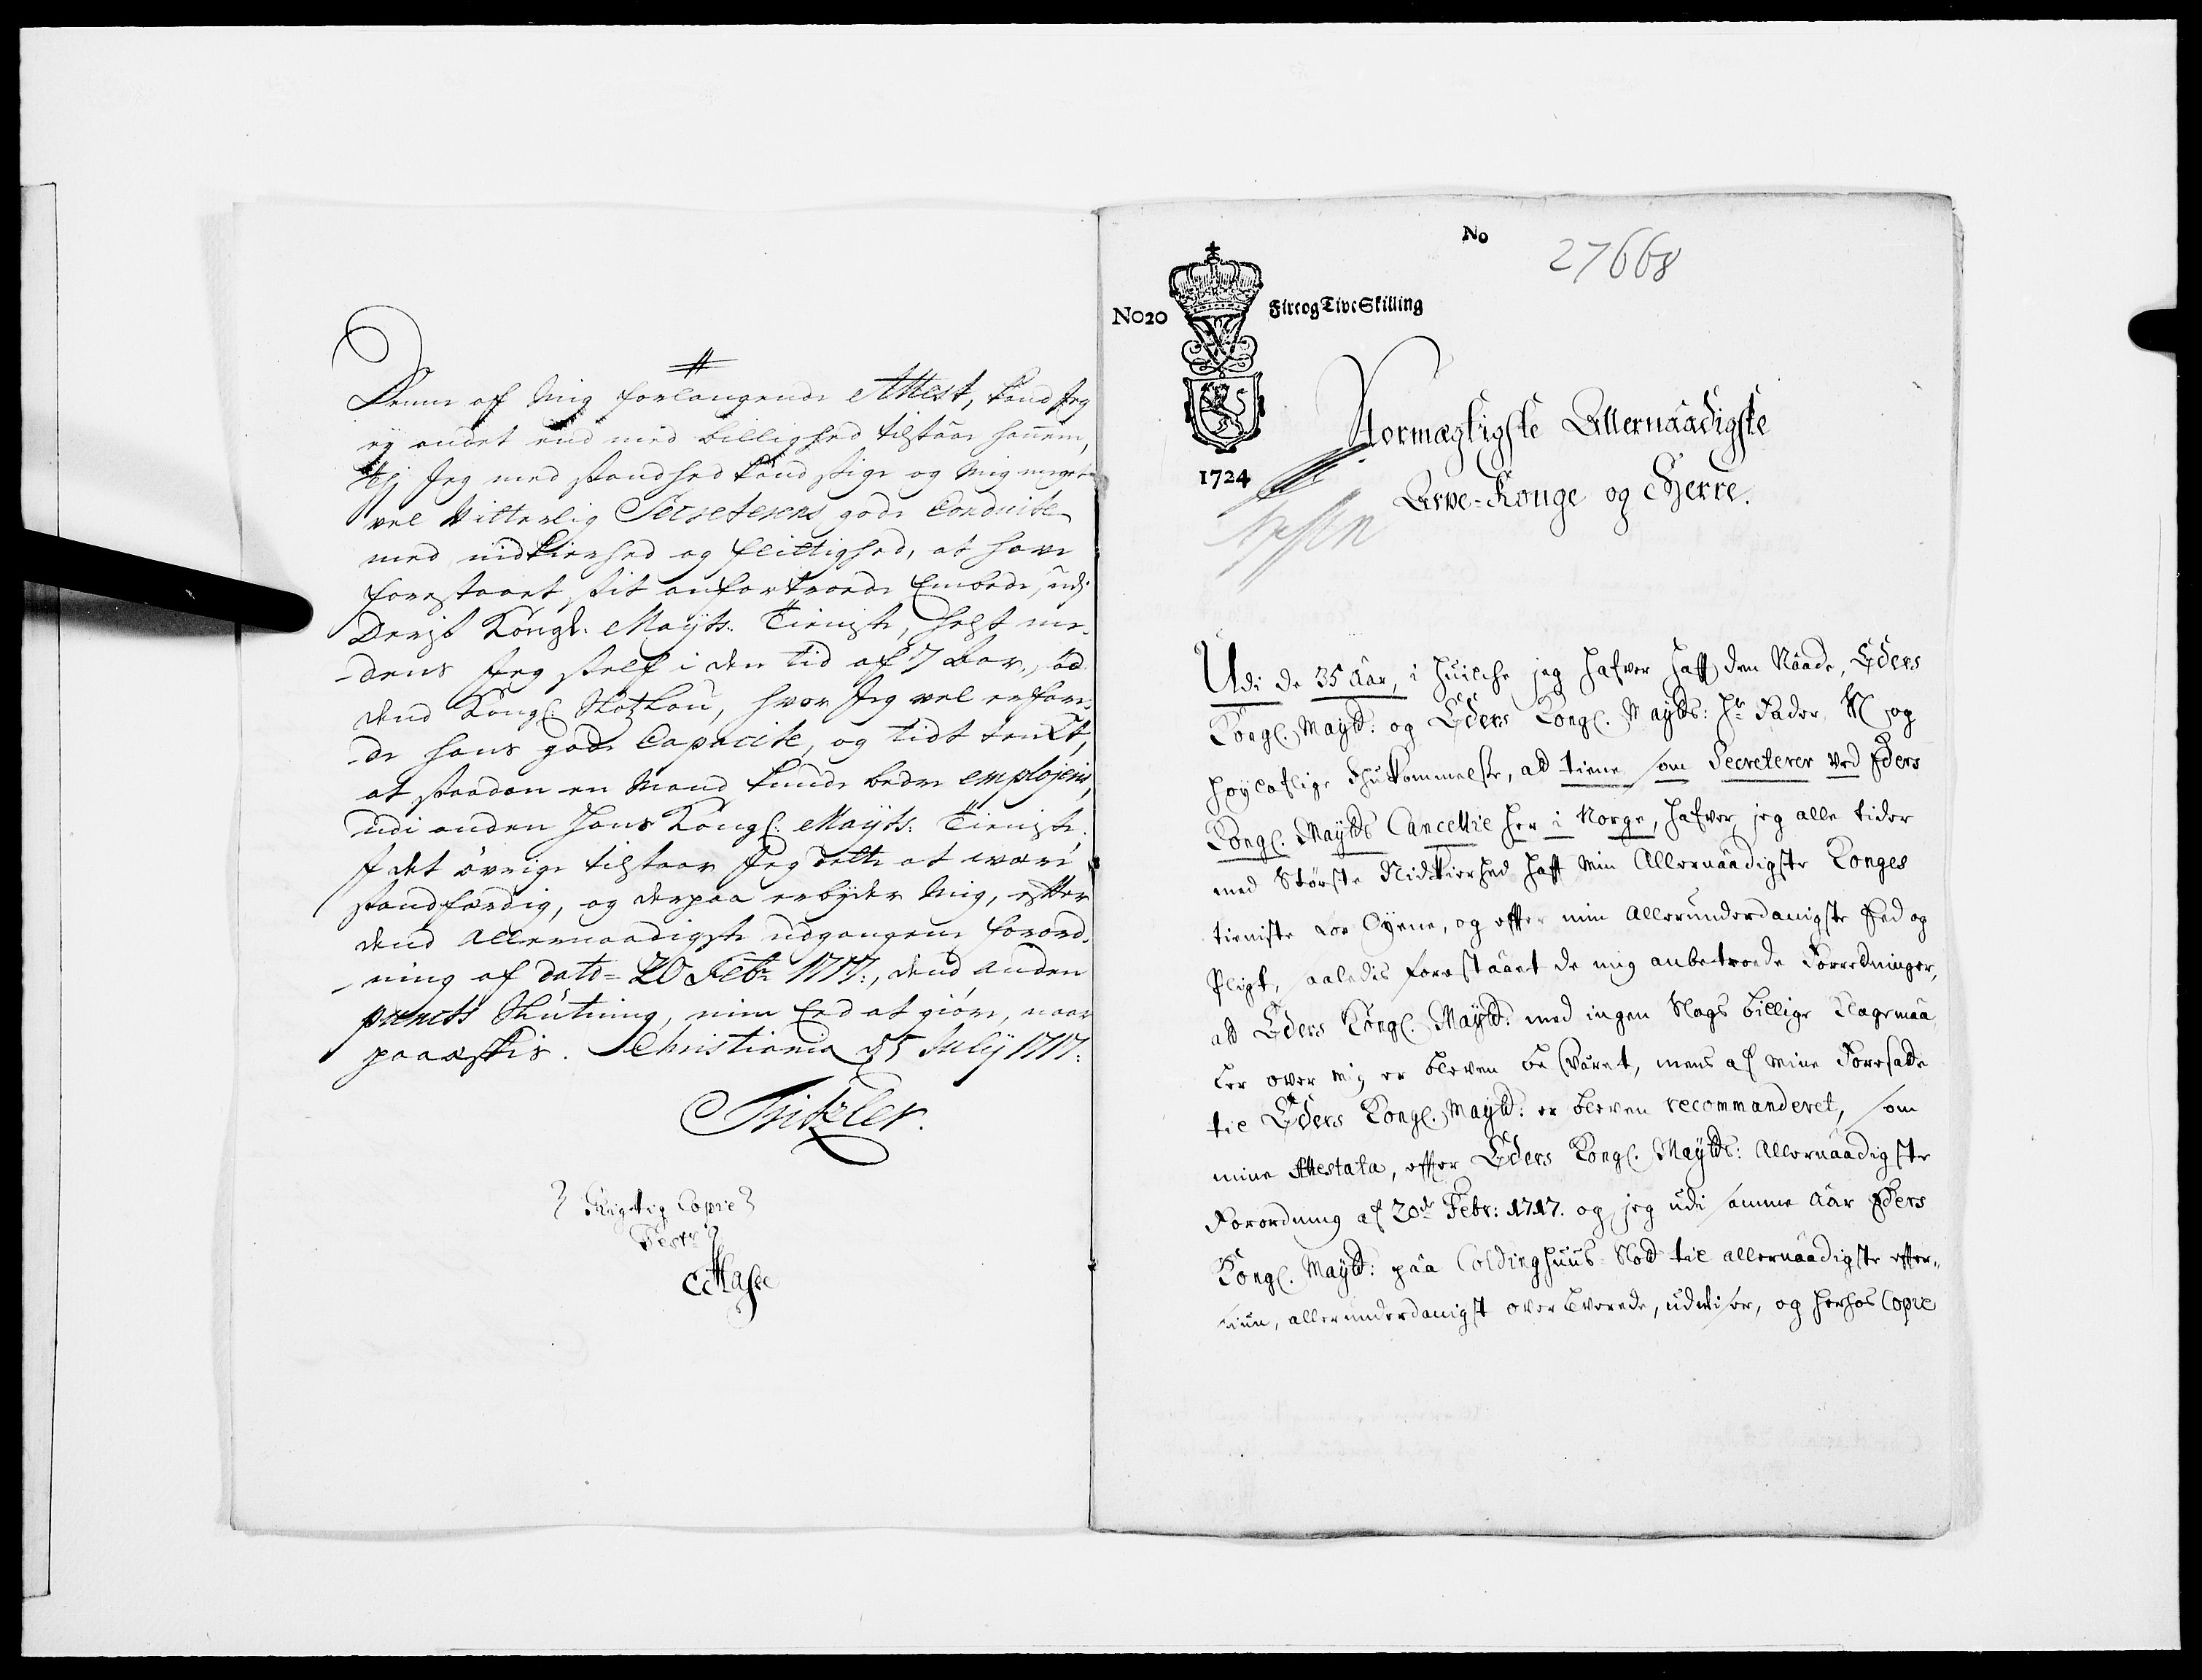 Denne af mig forlangende Attest, kand Jeg
ey andet end med billighed tilstaae hannem,
thj Jeg med sandhed kand sige og mig meget
vel vitterlig Secreterens gode Conduite
med nidkierhed og flittighed, at have
forestaaet sit anfortroede Embede, udj
Deris Kongl. Mayts. Tieniste, helst me-
dens Jeg self i den tid af 7 Aar, sad
dend Kongl. Slotzlou, hvor Jeg vel erfare-
de hans gode Capacite, og tidt tenkt,
at saadan en Mand kunde bedre emplojeris,
udi anden Hans Kongl. Mayts. Tieniste.
I det övrige tilstaar Jeg dette at være
sandfærdig, og derpaa erbyder mig, efter
dend allernaadigste udgangene forord-
ning af dato 20 Febr 1717:, dend anden
puncts Slutning, min Eed at giöre, naar
paaeskis. Christiania d 5 Julij 1717:
Tritzler.
Rigtig Copie
Test
No
27668
No 20
Fire og Tive Skilling
1724
Stormægtigste Allernaadigste
Arve-Konge og Herre.
Udi de 35 Aar, i huilche jeg hafver hafft den Naade, Eders
Kongl. Mayts: og Eders Kongl. Mayts: Hr Fader, og
höyloflige Ihukommelse, at tiene som Secreterer ved Eders
Kongl. Mayts Cancellie her i Norge, hafver jeg alle tider
med Störste Nidkierhed hafft min Allernaadigste Konges
tieniste for Öyene, og effter min allerunderdanigste Eed og
Pligt, saaledis forestaaet de mig anbetroede Forretninger,
at Eders Kongl. Mayts: med ingen Slags billige Klagemaa
ler over mig er bleven besväret, mens af mine Foresatte
til Eders Kongl. Mayts: er bleven recommanderet, som
mine Attestata, effter Eders Kongl. Mayts: Allernaadigste
Forordning af 20de Febr: 1717. og jeg udi samme Aar Eders
Kongl. Mayts: paa Coldinghuus Slot til allernaadigste effter-
siun, allerunderdanigst overleverede, udviser, og herhos Copie